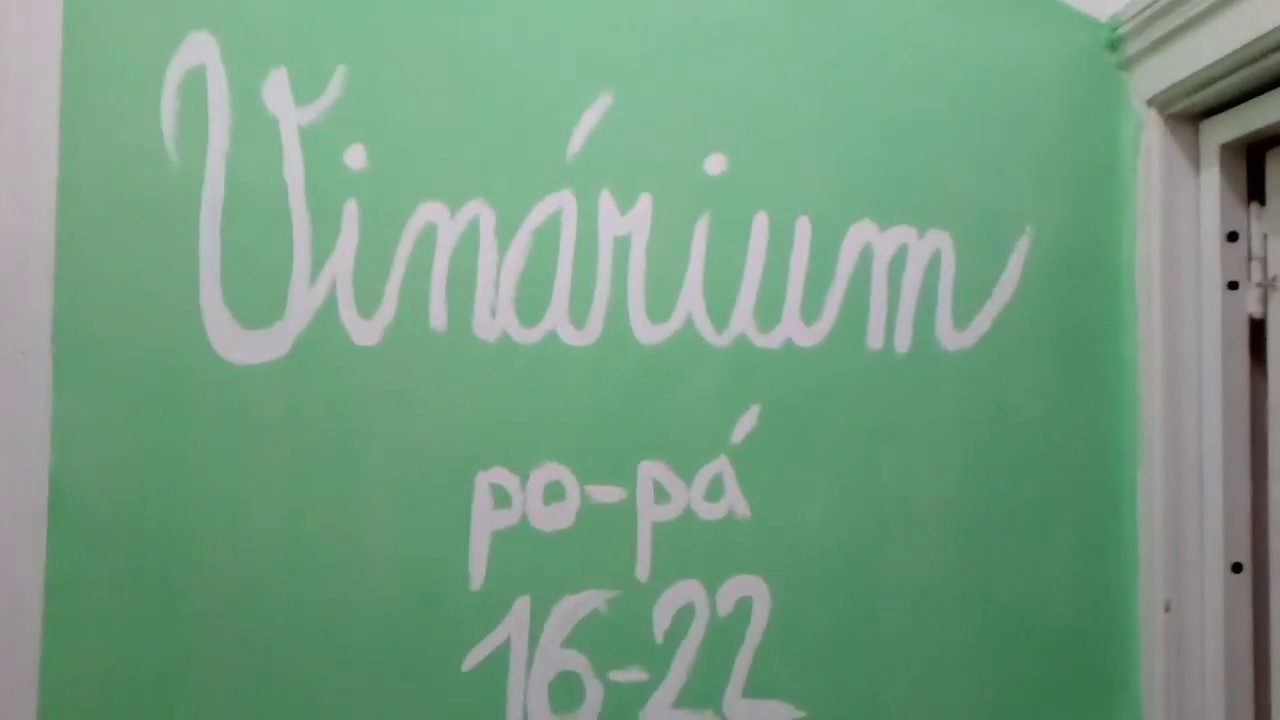 Vinárium
po-pá
16-22